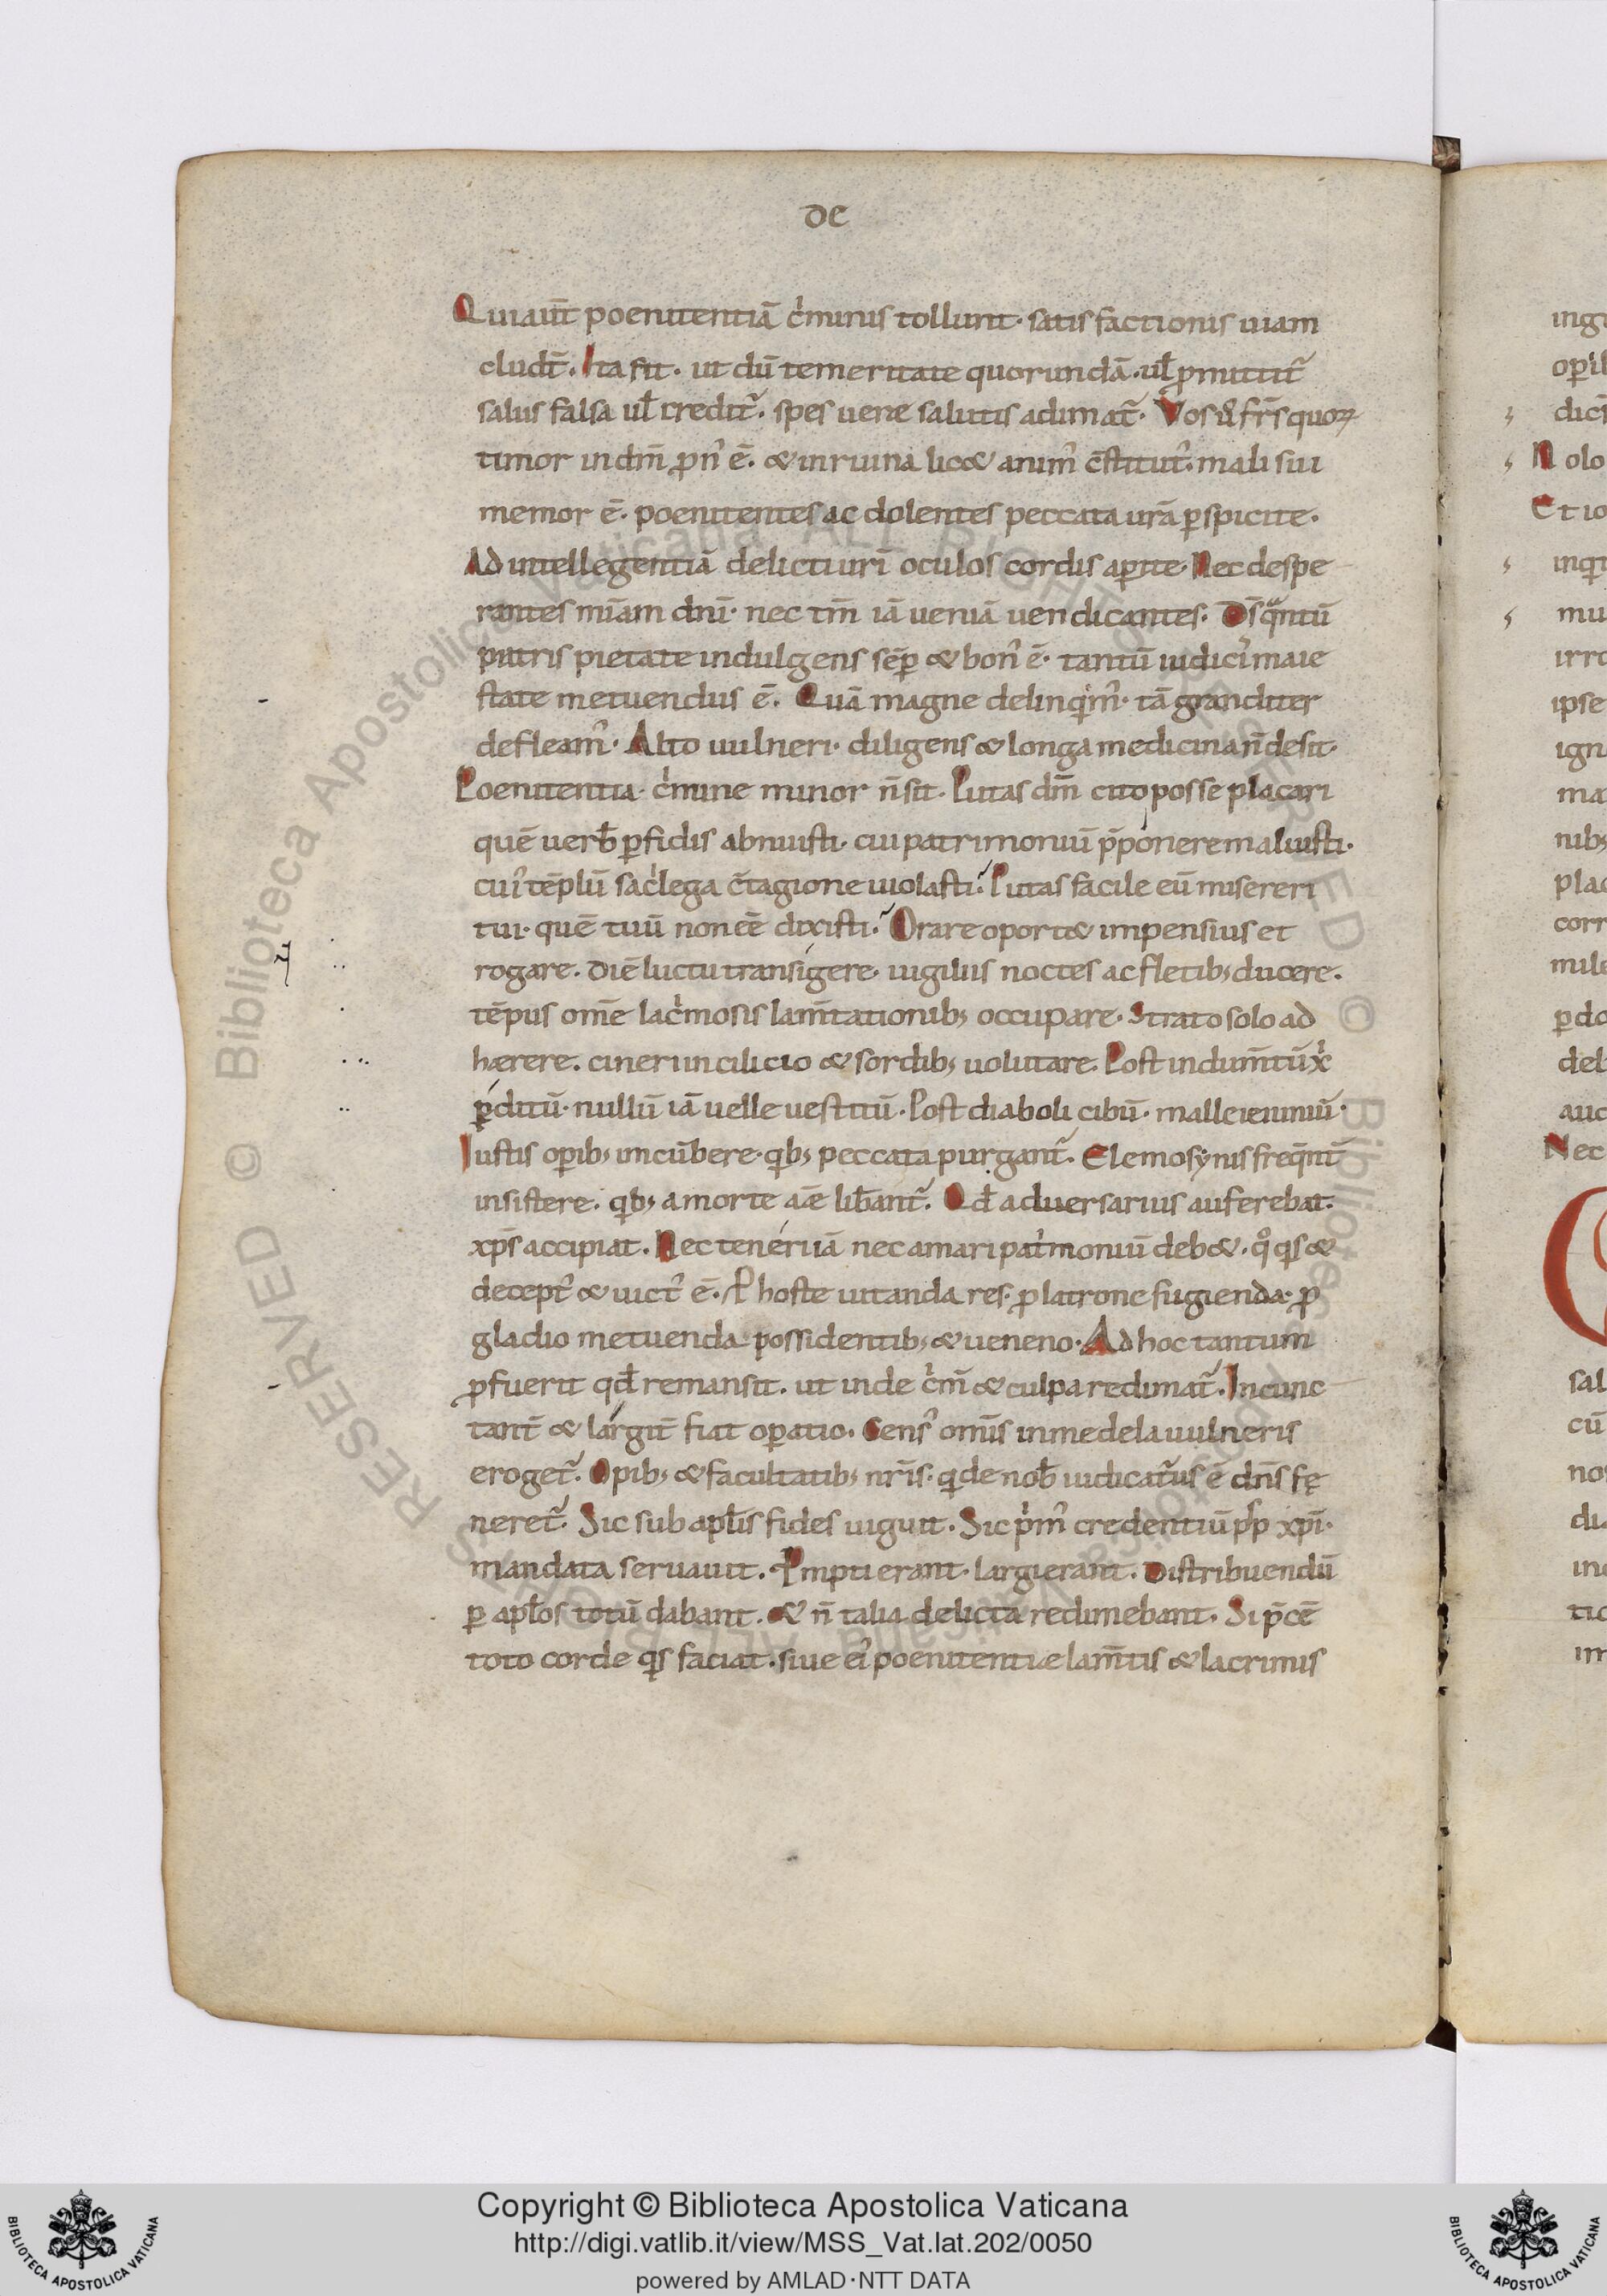 de
Quiaut̄ poenitentiā c̓minis tollunt· satisfactionis uiam
cludt̄. Ita fit· ut dū temeritate quorundā·ul̄ ꝓmittit᷑
salus falsa ul̄ credit᷑. spes uerae salutis adimat᷑. Vos ů fr̄s quoꝝ
timor in dm̄ ꝓn᷒ ē. & inruina lic& anim᷒ c̄stitut᷒. mali sui
memor ē. poenitentes ac dolentes peccata ur̄a ꝑspicite.
Ad intellegentiā delicti uri̅ oculos cordis aꝑite. Nec despe
rantes mi̅am dni̅· nec tm̄ iā ueniā uendicantes. Ds̄ qͣntū
patris pietate indulgens sēꝑ & bon᷒ ē· tantū iudici᷒ maie
state metuendus ē. Quā magne delinqⁱm᷒· tā granditer
defleam᷒. Alto uulneri· diligens & longa medicina n̄ desit·
Poenitentia· c̓mine minor n̄ sit. Putas dm̄ cito posse placari
quē uerb̄ ꝑfidis abnuisti· cui patrimoniū p̄ponere maluisti·
cui᷒ tēplū sac̓lega c̄tagione uiolasti? Putas facile eū misereri
tui· quē tuū non eē dixisti? Orare oport& impensius et
rogare. diē luctu transigere· uigiliis noctes ac fletib; ducere.
tēpus om̄e lac̓mosis lam̄tationib; occupare. Strato solo ad
haerere. cineri in cilicio & sordib; uolutare. Post indum̄tū xp̄i
ꝑditū· nullū iā uelle uestitū. Post diaboli cibū· malle ieiuniū·
Iustis oꝑib; incūbere· qⁱb; peccata purgant᷑. Elemosynis freq̄nt̄
insistere· qⁱb; a morte aāe lib̄ant᷑. Qd̄ aduersarius auferebat·
xp̄s accipiat. Nec teneri iā nec amari pat̓moniū deb&. qͦ qⁱs &
decept᷒ & uict᷒ ē. P hoste uitanda res· ꝓ latrone fugienda· ꝓ
gladio metuenda possidentib; & ueneno. Ad hoc tantum
ꝓfuerit qd̄ remansit. ut inde c̓m̄ & culpa redimat᷑. Incunc
tant̄ & largit̄ fiat oꝑatio. Cens᷒ om̄is in medela uulneris
eroget᷑. Opib; & facultatib; nr̄is· qⁱ de nob̄ iudicat᷑us ē dn̄s fę
neret᷑. Sic sub apl̄is fides uiguit. Sic pⁱm᷒ credentiū pp̄ xp̄i·
mandata seruauit. Prompti erant· largi erant. Distribuendū
ꝑ apl̄os totū dabant. & n̄ talia delicta redimebant. Si p̄cē
toto corde qⁱs faciat· siue ei᷒ poenitentiae lam̄tis & lacrimis
Copyright © Biblioteca Apostolica Vaticana
http://digi.vatlib.it/view/MSS_Vat.lat.202/0050
powered by AMLAD·NTT DATA